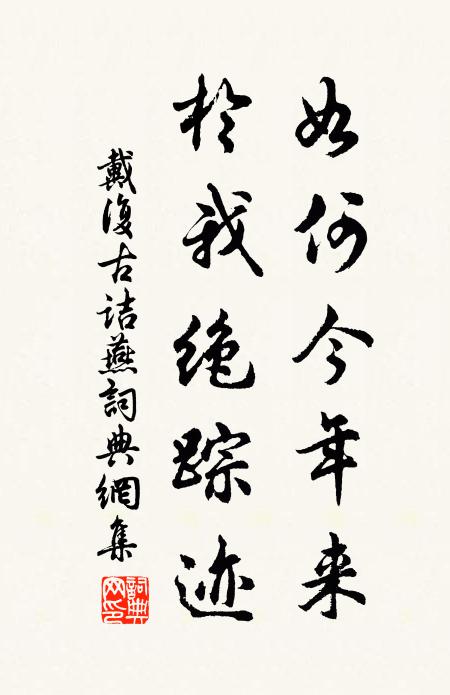 如何今年来
於我绝踪迹
戴復古詰燕詞典網集
詞典网印